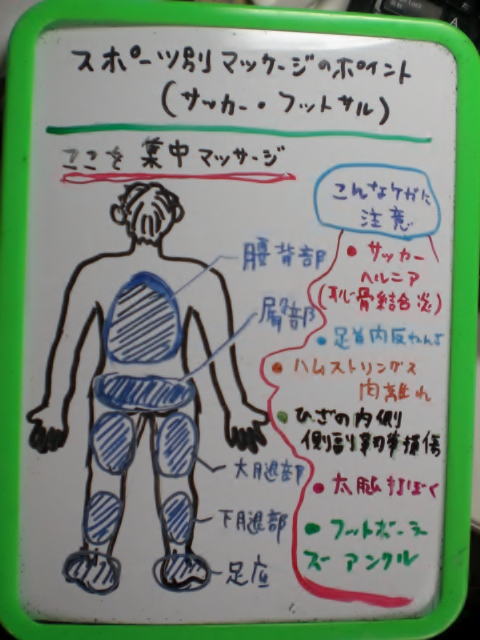 スポーツ別マッサージのポイント
(サッカー・フットサル)
ここを集中マッサージ
こんなケガに
注意
腰背部
臀部
大腿部
下腿部
足底
・サッカー
ヘルニア
(恥骨結合炎)
・足首内反ねんざ
・ハムストリングス
肉離れ
・ひざの内側
側副靭帯損傷
・大腿打ぼく
・フットボーラー
ズアンクル